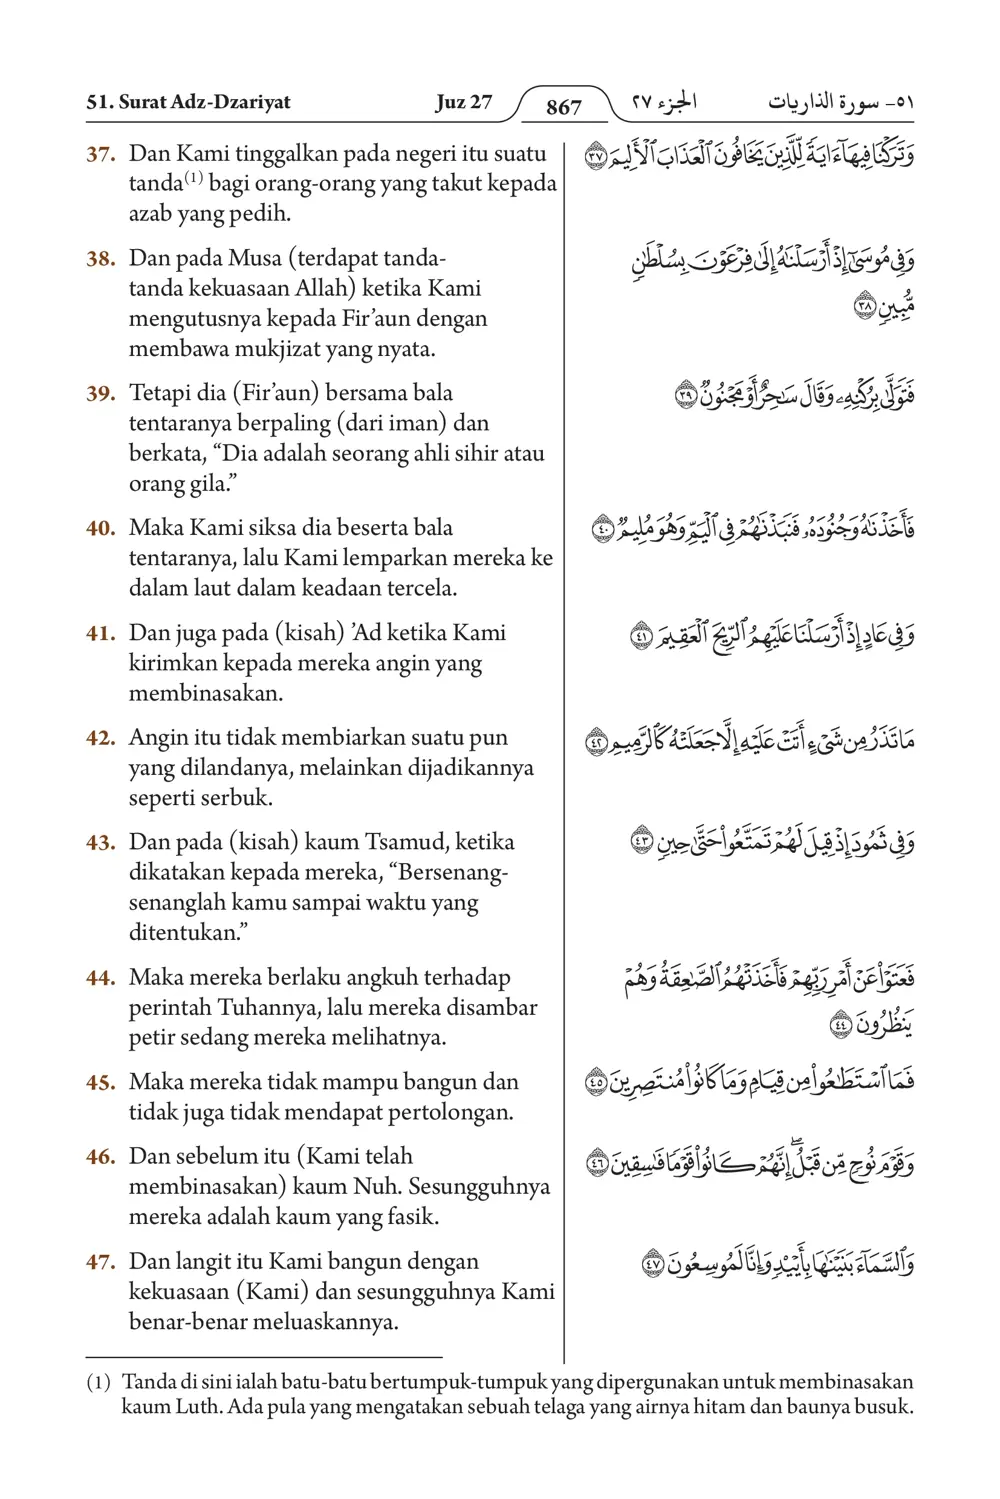 51. Surat Adz-Dzariyat Juz 27 867 الجزء ٢٧ ٥١- سورة الذاريات
37. Dan Kami tinggalkan pada negeri itu suatu
tanda(1) bagi orang-orang yang takut kepada
azab yang pedih.
وَتَرَكْنَا فِيهَآ ءَايَةً لِّلَّذِينَ يَخَافُونَ ٱلْعَذَابَ ٱلْأَلِيمَ ٣٧
38. Dan pada Musa (terdapat tanda-
tanda kekuasaan Allah) ketika Kami
mengutusnya kepada Fir’aun dengan
membawa mukjizat yang nyata.
وَفِى مُوسَىٰٓ إِذْ أَرْسَلْنَٰهُ إِلَىٰ فِرْعَوْنَ بِسُلْطَٰنٍ
مُّبِينٍ ٣٨
39. Tetapi dia (Fir’aun) bersama bala
tentaranya berpaling (dari iman) dan
berkata, “Dia adalah seorang ahli sihir atau
orang gila.”
فَتَوَلَّىٰ بِرُكْنِهِۦ وَقَالَ سَٰحِرٌ أَوْ مَجْنُونٌ ٣٩
40. Maka Kami siksa dia beserta bala
tentaranya, lalu Kami lemparkan mereka ke
dalam laut dalam keadaan tercela.
فَأَخَذْنَٰهُ وَجُنُودَهُۥ فَنَبَذْنَٰهُمْ فِى ٱلْيَمِّ وَهُوَ مُلِيمٌ ٤٠
41. Dan juga pada (kisah) ’Ad ketika Kami
kirimkan kepada mereka angin yang
membinasakan.
وَفِى عَادٍ إِذْ أَرْسَلْنَا عَلَيْهِمُ ٱلرِّيحَ ٱلْعَقِيمَ ٤١
42. Angin itu tidak membiarkan suatu pun
yang dilandanya, melainkan dijadikannya
seperti serbuk.
مَا تَذَرُ مِن شَىْءٍ أَتَتْ عَلَيْهِ إِلَّا جَعَلَتْهُ كَٱلرَّمِيمِ ٤٢
43. Dan pada (kisah) kaum Tsamud, ketika
dikatakan kepada mereka, “Bersenang-
senanglah kamu sampai waktu yang
ditentukan.”
وَفِى ثَمُودَ إِذْ قِيلَ لَهُمْ تَمَتَّعُوا۟ حَتَّىٰ حِينٍ ٤٣
44. Maka mereka berlaku angkuh terhadap
perintah Tuhannya, lalu mereka disambar
petir sedang mereka melihatnya.
فَعَتَوْا۟ عَنْ أَمْرِ رَبِّهِمْ فَأَخَذَتْهُمُ ٱلصَّٰعِقَةُ وَهُمْ
يَنظُرُونَ ٤٤
45. Maka mereka tidak mampu bangun dan
tidak juga tidak mendapat pertolongan.
فَمَا ٱسْتَطَٰعُوا۟ مِن قِيَامٍ وَمَا كَانُوا۟ مُنتَصِرِينَ ٤٥
46. Dan sebelum itu (Kami telah
membinasakan) kaum Nuh. Sesungguhnya
mereka adalah kaum yang fasik.
وَقَوْمَ نُوحٍ مِّن قَبْلُ ۖ إِنَّهُمْ كَانُوا۟ قَوْمًا فَٰسِقِينَ ٤٦
47. Dan langit itu Kami bangun dengan
kekuasaan (Kami) dan sesungguhnya Kami
benar-benar meluaskannya.
وَٱلسَّمَآءَ بَنَيْنَٰهَا بِأَيْي۟دٍ وَإِنَّا لَمُوسِعُونَ ٤٧
(1) Tanda di sini ialah batu-batu bertumpuk-tumpuk yang dipergunakan untuk membinasakan
kaum Luth. Ada pula yang mengatakan sebuah telaga yang airnya hitam dan baunya busuk.